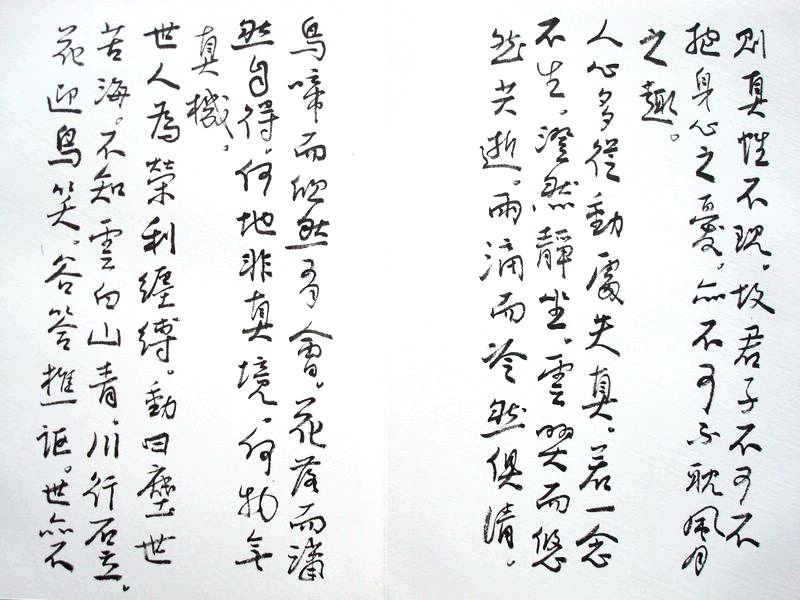 則真性不現。故君子不可不
抱身心之憂。亦不可不耽風月
之趣。
人心多從動處失真。若一念
不生。澄然靜坐。雲興而悠
然共逝。雨滴而冷然俱清。
鳥啼而欣然有會。花落而瀟
然自得。何地非真境。何物無
真機。
世人為榮利纏縛。動曰塵世
苦海。不知雲白山青。川行石立。
花迎鳥笑。谷答樵謳。世亦不